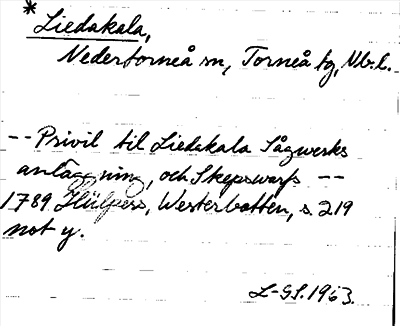 * Liedakala,
Nedertorneå sn, Torneå tg, Nb.l.
-- Privil til Liedakala Sågwerks
anläggning, och Skepswarfs --
1789 Hülpers, Westerbotten, s. 219
not y.
L-GL. 1963.